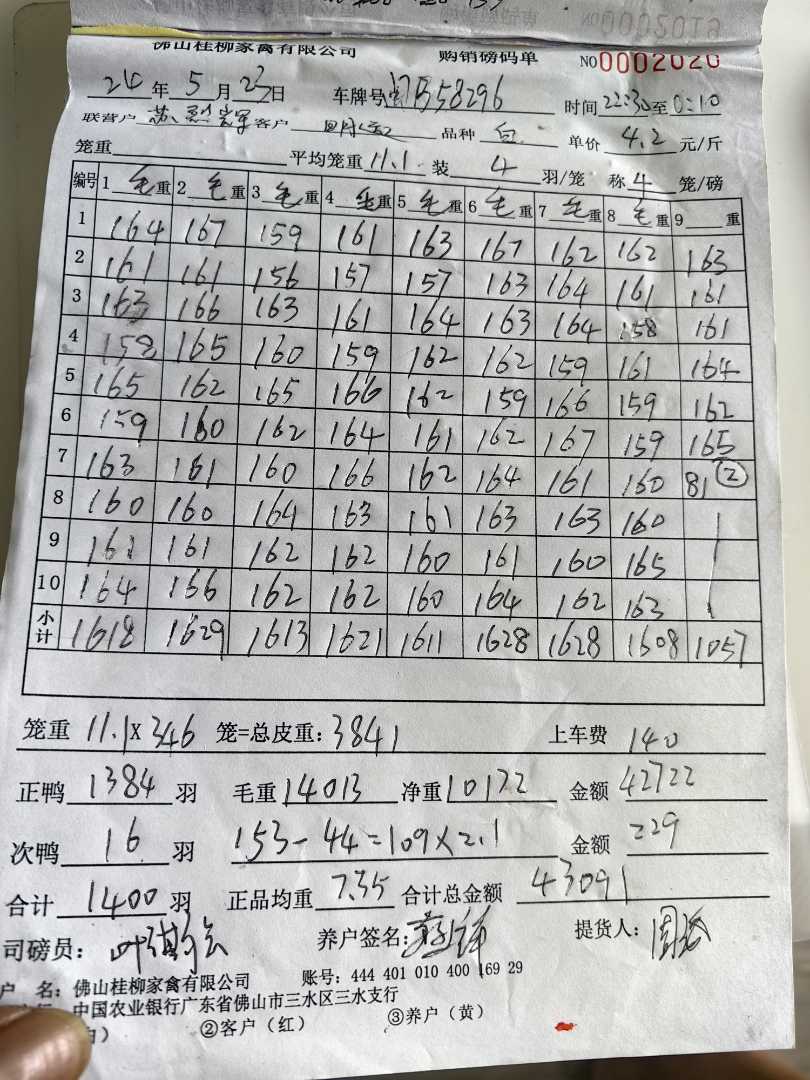 NO0002019
佛山桂柳家禽有限公司 购销磅码单 NO0002020
24年5月23日 车牌号 58296 时间22:30至0:10
联营户 苏 客户 品种 白 单价 4.2 元/斤
笼重 平均笼重 11.1 装 4 羽/笼 称 4 笼/磅
编号 1 毛重 2 毛重 3 毛重 4 毛重 5 毛重 6 毛重 7 毛重 8 毛重 9 重
1 164 167 159 161 163 167 162 162 163
2 161 161 156 157 157 163 164 161 161
3 163 166 163 161 164 163 164 158 161
4 158 165 160 159 162 162 159 161 164
5 165 162 165 166 162 159 166 159 162
6 159 160 162 164 161 162 167 159 165
7 163 161 160 166 162 164 161 160 81 ②
8 160 160 164 163 161 163 163 160
9 161 161 162 162 160 161 160 165
10 164 166 162 162 160 164 162 163
小计 1618 1629 1613 1621 1611 1628 1628 1608 1057
笼重 11.1 X 346 笼=总皮重: 3841 上车费 140
正鸭 1384 羽 毛重 14013 净重 10172 金额 42722
次鸭 16 羽 153-44=109×2.1 金额 229
合计 1400 羽 正品均重 7.35 合计总金额 43091
司磅员: 叶 养户签名: 提货人: 周
户 名: 佛山桂柳家禽有限公司 账号: 444 401 010 400 169 29
中国农业银行广东省佛山市三水区三水支行
白) ②客户(红) ③养户(黄)